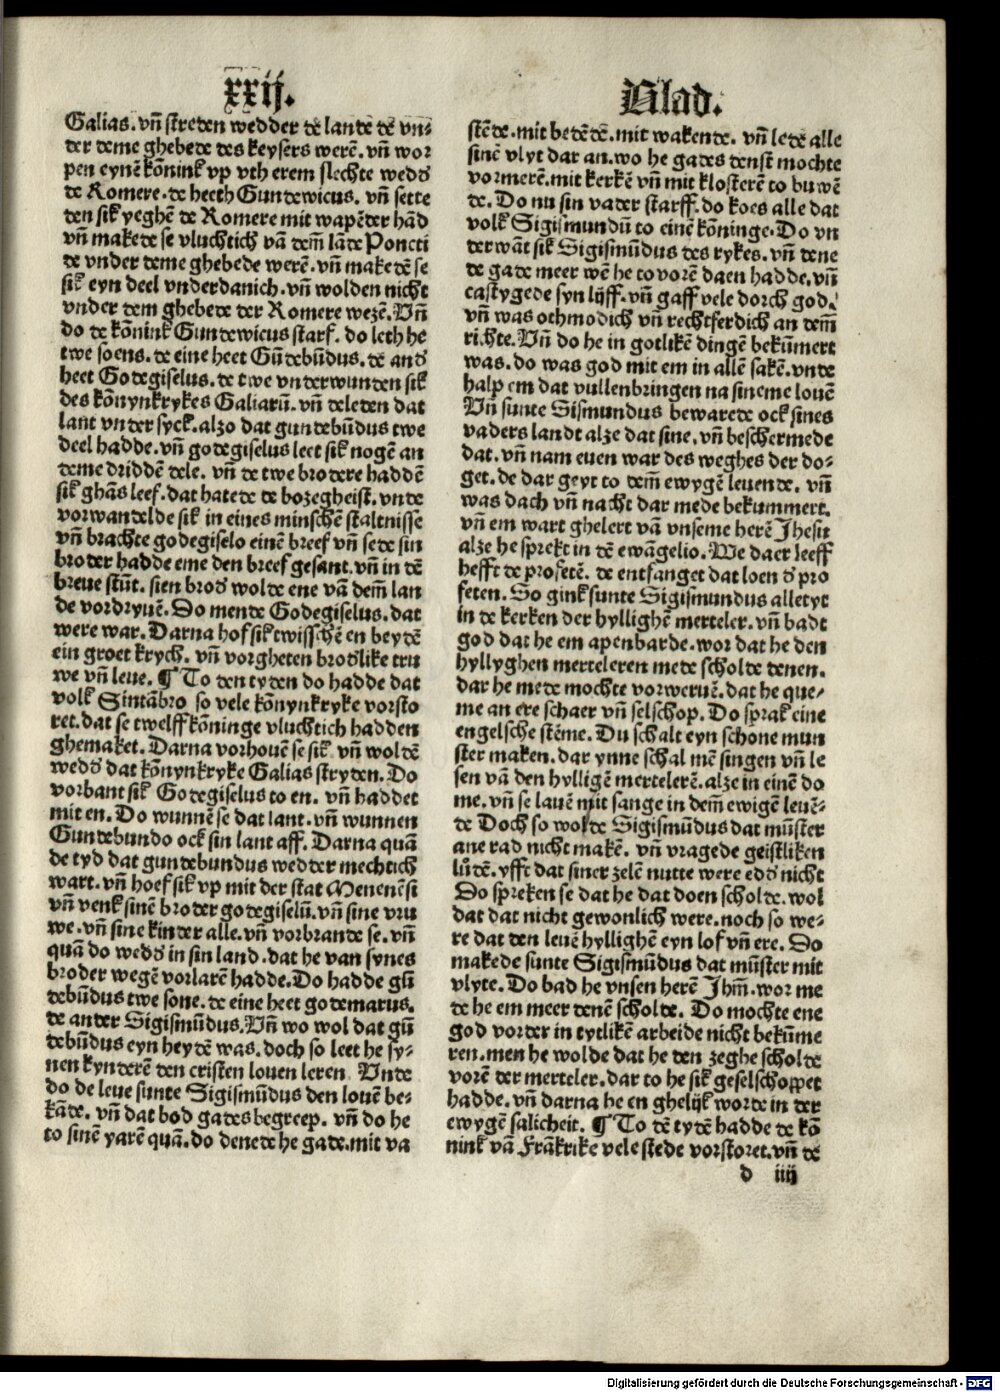 xxij.
Galias. vn̄ streden wedder de lande de vn⸗
der deme ghebede des keysers werē. vn̄ wor
pen eynē kōnink vp vth erem slechte wedd̕
de Romere. de heeth Gundewicus. vn̄ sette
den sik yeghē de Romere mit wapēder hād
vn̄ makede se vluchtich vā dem̄ lāde Poncti
de vnder deme ghebede werē. vn̄ makedē se
sik eyn deel vnderdanich. vn̄ wolden nicht
vnder dem ghebede der Romere wezē. Vn̄
do de kōnink Gundewicus starf. do leth he
twe soens. de eine heet Gūdebūdus. de and̕
heet Godegiselus. de twe vnderwunden sik
des kōnynkrykes Galiarū. vn̄ deleden dat
lant vnder syck. alzo dat gundebūdus twe
deel hadde. vn̄ godegiselus leet sik nogē an
deme driddē dele. vn̄ de twe brodere haddē
sik ghās leef. dat hatede de bozegheist. vnde
vorwandelde sik in eines minschē staltnisse
vn̄ brachte godegiselo einē breef vn̄ sede sin
broder hadde eme den breef gesant. vn̄ in dē
breue stūt. sien brod̕ wolde ene vā dem̄ lan
de vordryuē. Do mende Godegiselus. dat
were war. Darna hof sik twisschē en beydē
ein groet krych. vn̄ vorgheten brod̕like tru
we vn̄ leue. ¶ To den tyden do hadde dat
volk Sintābro so vele kōnynkryke vorsto
ret. dat se twelff kōninge vluchtich hadden
ghemaket. Darna vorhouē se sik. vn̄ woldē
wedd̕ dat kōnynkryke Galias stryden. Do
vorbant sik Godegiselus to en. vn̄ haddet
mit en. Do wunnē se dat lant. vn̄ wunnen
Gundebundo ock sin lant aff. Darna quā
de tyd dat gundebundus wedder mechtich
wart. vn̄ hoef sik vp mit der stat Menenēsi
vn̄ venk sinē broder godegiselū. vn̄ sine vru
we. vn̄ sine kinder alle. vn̄ vorbrande se. vn̄
quā do wedd̕ in sin land. dat he van synes
broder wegē vorlarē hadde. Do hadde gū
debūdus twe sone. de eine heet godemarus.
de ander Sigismūdus. Vn̄ wo wol dat gū
debūdus eyn heydē was. doch so leet he sy⸗
nen kynderē den cristen louen leren Vnde
do de leue sunte Sigismūdus den louē be⸗
kāde. vn̄ dat bod gades begreep. vn̄ do he
to sinē yarē quā. do denede he gade. mit va
Blad.
stēde. mit bedēde. mit wakende. vn̄ lede alle
sinē vlyt dar an. wo he gades denst mochte
vormerē. mit kerkē vn̄ mit klosterē to buwē
de. Do nu sin vader starff. do koes alle dat
volk Sigismundū to einē kōninge. Do vn
derwāt sik Sigismūdus des rykes. vn̄ dene
de gade meer wē he to vorē daen hadde. vn̄
castygede syn lijff. vn̄ gaff vele dorch god.
vn̄ was othmodich vn̄ rechtferdich an dem̄
richte. Vn̄ do he in gotlikē dingē bekūmert
was. do was god mit em in allē sakē. vnde
halp em dat vullenbringen na sineme louē
Vn̄ sunte Sismundus bewarede ock sines
vaders landt alze dat sine. vn̄ beschermede
dat. vn̄ nam euen war des weghes der do⸗
get. de dar geyt to dem̄ ewygē leuende. vn̄
was dach vn̄ nacht dar mede bekummert.
vn̄ em wart ghelert vā vnseme herē Jhesu
alze he sprekt in dē ewāgelio. We daer leeff
hefft de profetē. de entfanget dat loen d̕ pro
feten. So gink sunte Sigismundus alletyt
in de kerken der hyllighē merteler. vn̄ badt
god dat he em apenbarde. wor dat he den
hyllyghen merteleren mede scholde denen.
dar he mede mochte vorweruē. dat he que⸗
me an ere schaer vn̄ selschop. Do sprak eine
engelsche stēme. Du schalt eyn schone mun
ster maken. dar ynne schal mē singen vn̄ le
sen vā den hylligē mertelerē. alze in einē do
me. vn̄ se lauē mit sange in dem̄ ewigē leuē⸗
de Doch so wolde Sigismūdus dat mūster
ane rad nicht makē. vn̄ vragede geistliken
lūdē. yfft dat siner zelē nutte were edd̕ nicht
Do spreken se dat he dat doen scholde. wol
dat dat nicht gewonlich were. noch so we⸗
re dat den leuē hyllighē eyn lof vn̄ ere. Do
makede sunte Sigismūdus dat mūster mit
vlyte. Do bad he vnsen herē Jhm̄. wor me
de he em meer denē scholde. Do mochte ene
god vorder in tytlikē arbeide nicht bekūme
ren. men he wolde dat he den zeghe scholde
vorē der merteler. dar to he sik geselschoppet
hadde. vn̄ darna he en ghelijk worde in der
ewygē salicheit. ¶ To dē tydē hadde de kō
nink vā Frākrike vele stede vorstoret. vn̄ de
d iiij
Digitalisierung gefördert durch die Deutsche Forschungsgemeinschaft - DFG